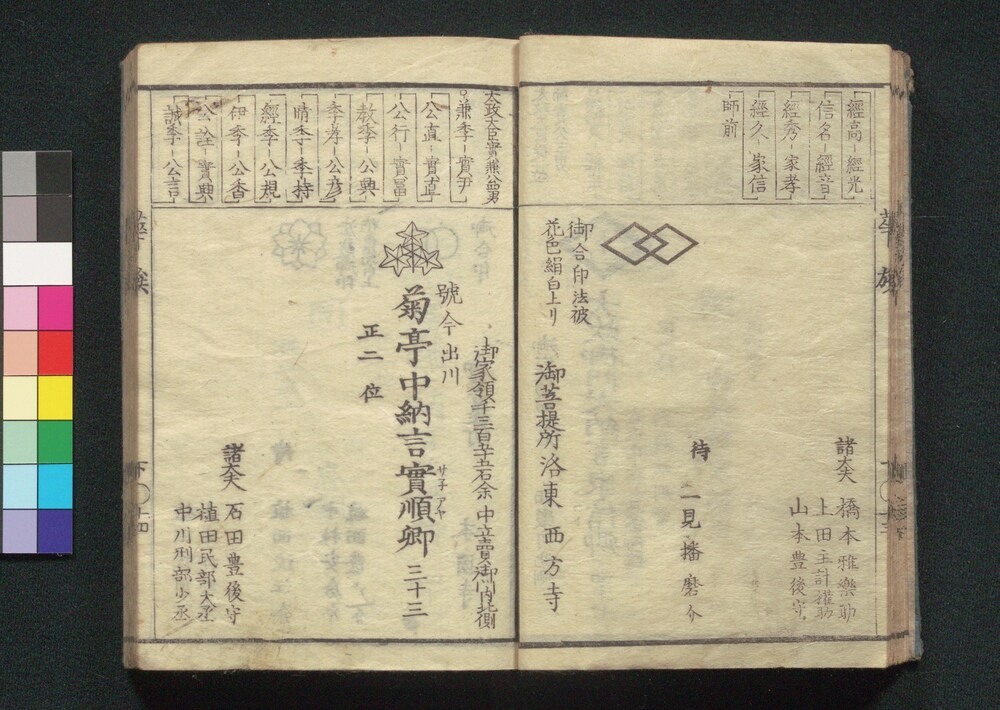 經高-經光
信名-經音
經秀-家孝
經久-家信
師前
諸大夫
橋本雅樂助
上田主計權助
山本豊後守
侍
二見播磨介
御合印法被
花色絹白上り
御菩提所洛東西方寺
太政大臣實兼公四男
兼季-實尹
公直-實直
公行-實富
教季-公興
季孝-公彦
晴季-季持
經季-公規
伊季-公香
公詮-實興
誠季-公言
御家領千三百五十五石余 中立賣御門内北側
號今出川
菊亭中納言實順卿 三十三
サネ アヤ
正二位
諸大夫
石田豊後守
植田民部大丞
中川刑部少丞
華族
華族
下〇十四